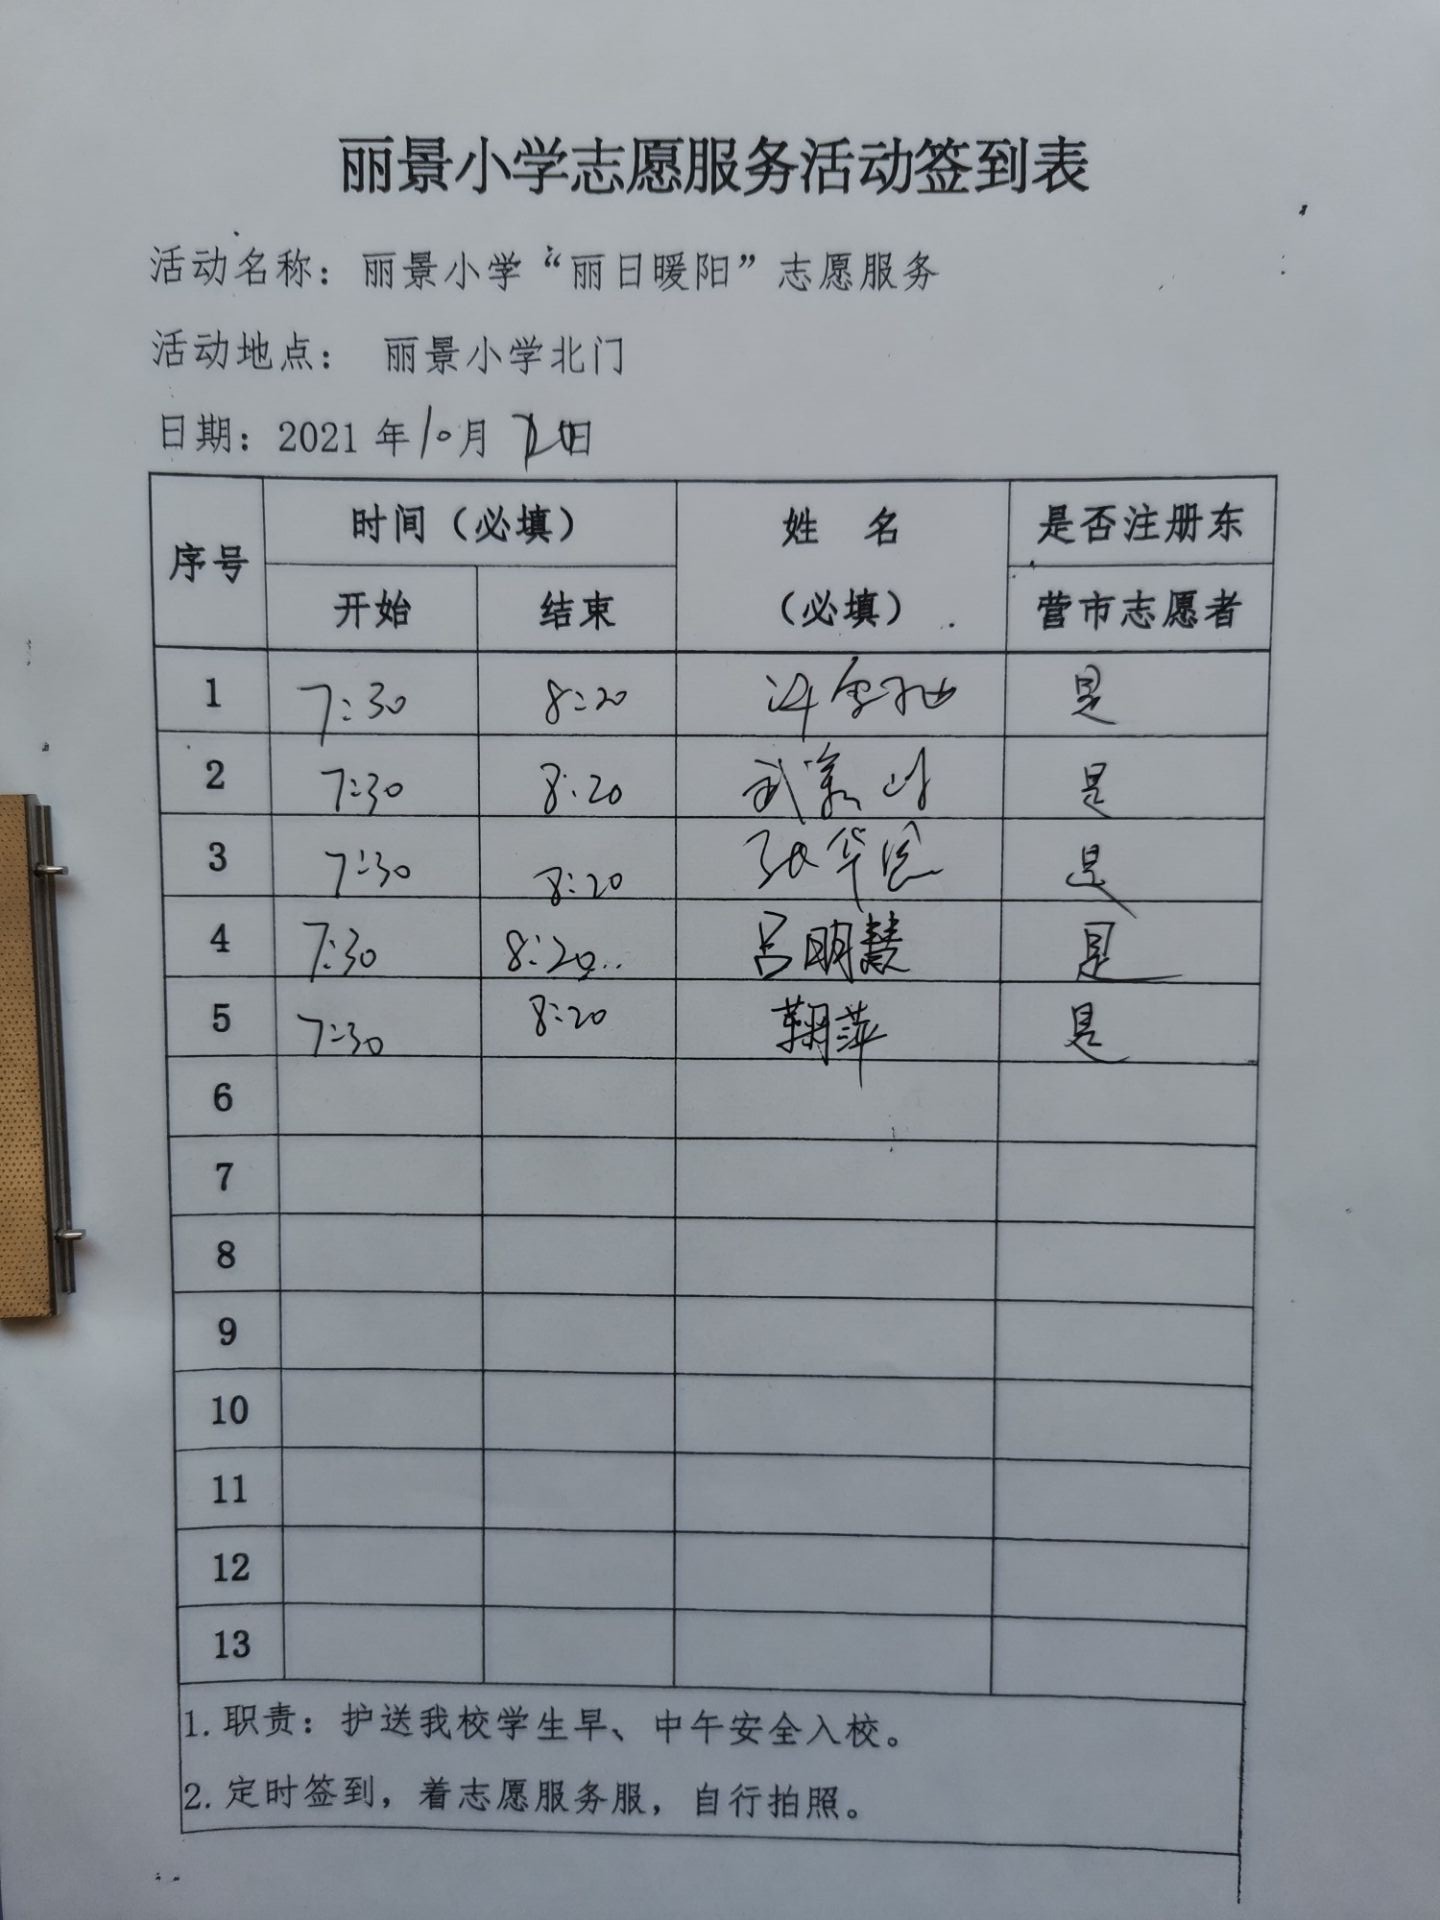 丽景小学志愿服务活动签到表
活动名称：丽景小学“丽日暖阳”志愿服务
活动地点： 丽景小学北门
日期：2021年10月 日
序号 时间（必填） 姓 名 是否注册东
开始 结束 （必填） 营市志愿者
1 7:30 8:20 是
2 7:30 8:20 武 是
3 7:30 8:20 张华 是
4 7:30 8:20.. 吕明慧 是
5 7:30 8:20 鞠萍 是
6
7
8
9
10
11
12
13
1. 职责：护送我校学生早、中午安全入校。
2. 定时签到，着志愿服务服，自行拍照。